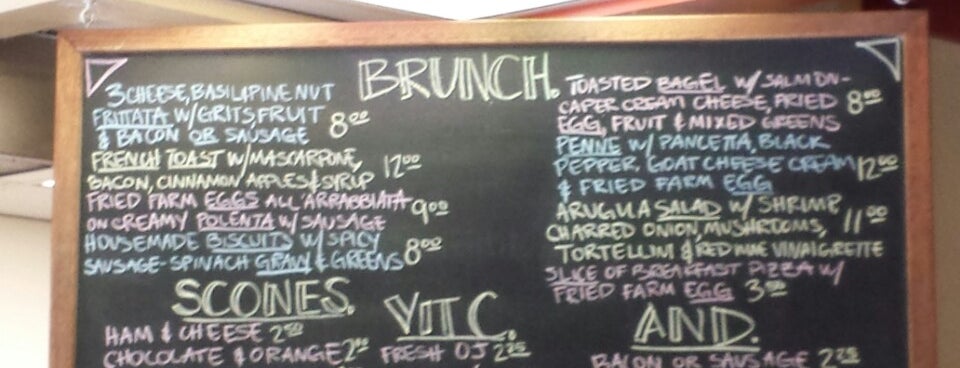 BRUNCH.
3 CHEESE, BASIL & PINE NUT
FRITTATA W/ GRITS, FRUIT
& BACON OR SAUSAGE 8.00
FRENCH TOAST W/ MASCARPONE,
BACON, CINNAMON APPLES & SYRUP 12.00
FRIED FARM EGGS ALL'ARRABBIATA
ON CREAMY POLENTA W/ SAUSAGE 9.00
HOUSEMADE BISCUITS W/ SPICY
SAUSAGE-SPINACH GRAVY & GREENS 8.00
TOASTED BAGEL W/ SALMON-
CAPER CREAM CHEESE, FRIED
EGG, FRUIT & MIXED GREENS 8.00
PENNE W/ PANCETTA, BLACK
PEPPER, GOAT CHEESE CREAM
& FRIED FARM EGG 12.00
ARUGULA SALAD W/ SHRIMP
CHARRED ONION, MUSHROOMS,
TORTELLINI & RED WINE VINAIGRETTE 11.00
SLICE OF BREAKFAST PIZZA W/
FRIED FARM EGG 3.50
SCONES.
HAM & CHEESE 2.50
CHOCOLATE & ORANGE
VIT C.
FRESH OJ 2.25
AND.
BACON OR SAUSAGE 2.25